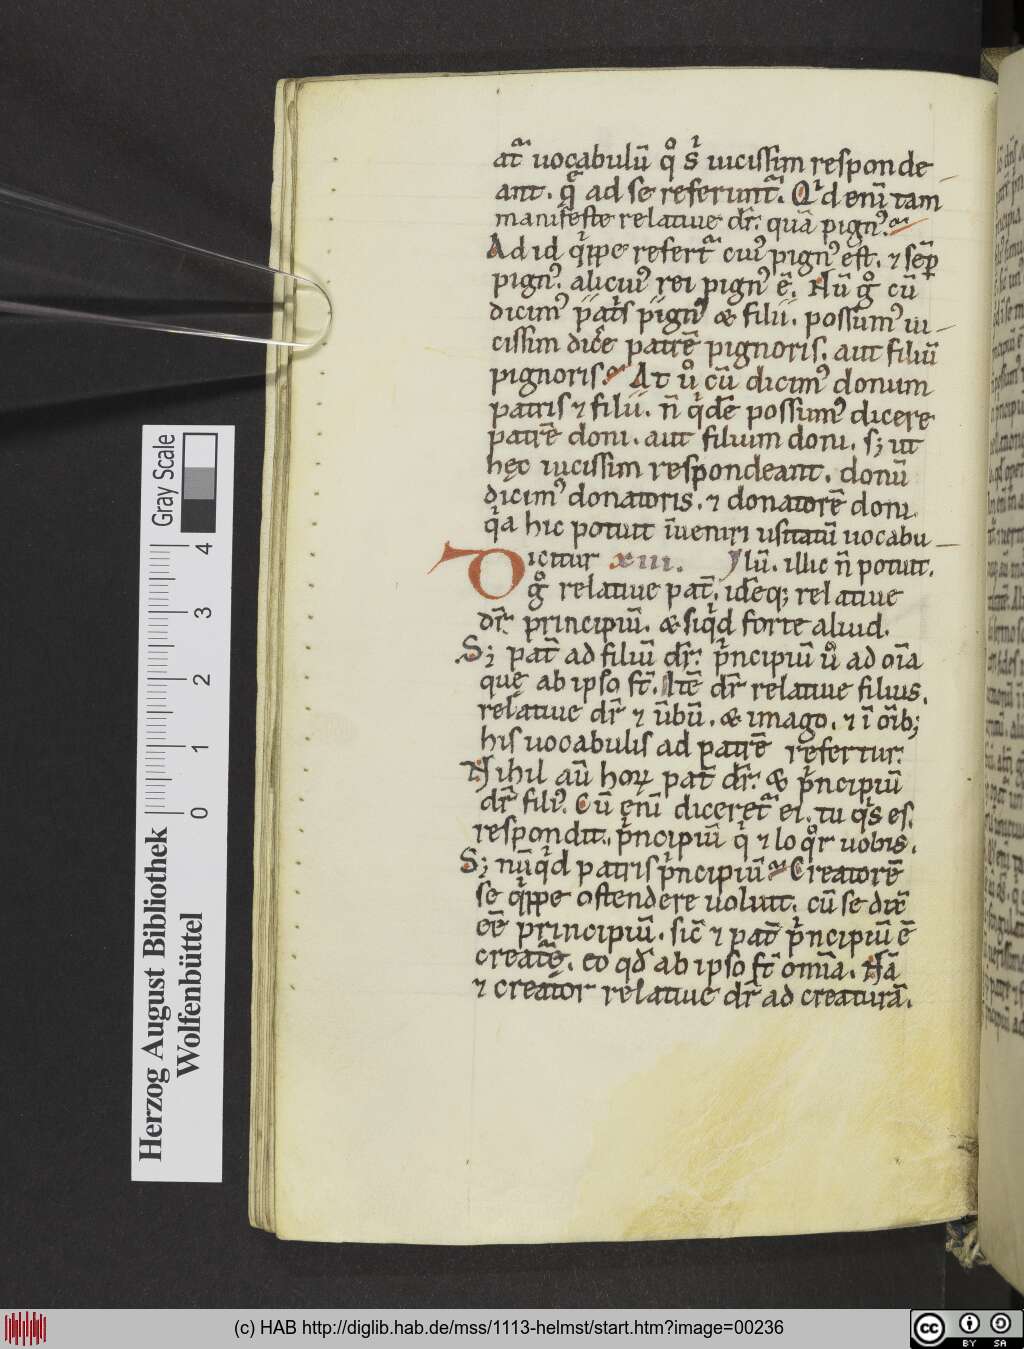 atᷓ uocabulū qͦ sͥ uicissim responde
ant. q̨ͣ ad se referuntᷓ. Qͥd enī tam
manifeste relatiue dr̄. quā pignꝰ.
Ad id qͥppe refertᷓ cuiꝰ pignꝰ est. ⁊ sēp
pignꝰ. alicuiꝰ rei pignꝰ ē. Nū gͦ cū
dicimꝰ patͥs pignꝰ & filii. possumꝰ ui
cissim dicͤe patrē pignoris. aut filiū
pignoris. At uͦ cū dicimꝰ donum
patris ⁊ filii. n̄ qͥdē possumꝰ dicere
patrē doni. aut filium doni. s; ut
hęc uicissim respondeant. donū
dicimꝰ donatoris. ⁊ donatorē doni.
qͥa hic potuit īueniri usitatū uocabu
icitur xiii. lū. illic n̄ potuit.
D gͦ relatiue pat̄. idēq; relatiue
dr̄. principiū. & siqͥd forte aliud.
S; pat̄ ad filiū dr̄. pͥncipiū uͦ ad oīa
quę ab ipso st̄. Itē dr̄ relatiue filius.
relatiue dr̄ ⁊ ūbū. & imago. ⁊ ī oīb;
his uocabulis ad patrē refertur.
Nihil aū hoꝝ pat̄ dr̄. & pͥncipiū
dr̄ filiꝰ. Cū enī diceretᷓ ei. tu qͥs es.
respondit. pͥncipiū qͥ ⁊ loqͦr uobis.
S; nūqͥd patris pͥncipiū Creatorē
se qͥppe ostendere uoluit. cū se dix̄
eē principiū. sic̄ ⁊ pat̄ pͥncipiū ē
creatᷓę. eo qđ ab ipso st̄ omīa. Nā
⁊ creator relatiue dr̄ ad creaturā.
Gray Scale
4
3
2
1
0
Herzog August Bibliothek
Wolfenbüttel
(c) HAB http://diglib.hab.de/mss/1113-helmst/start.htm?image=00236
cc BY SA